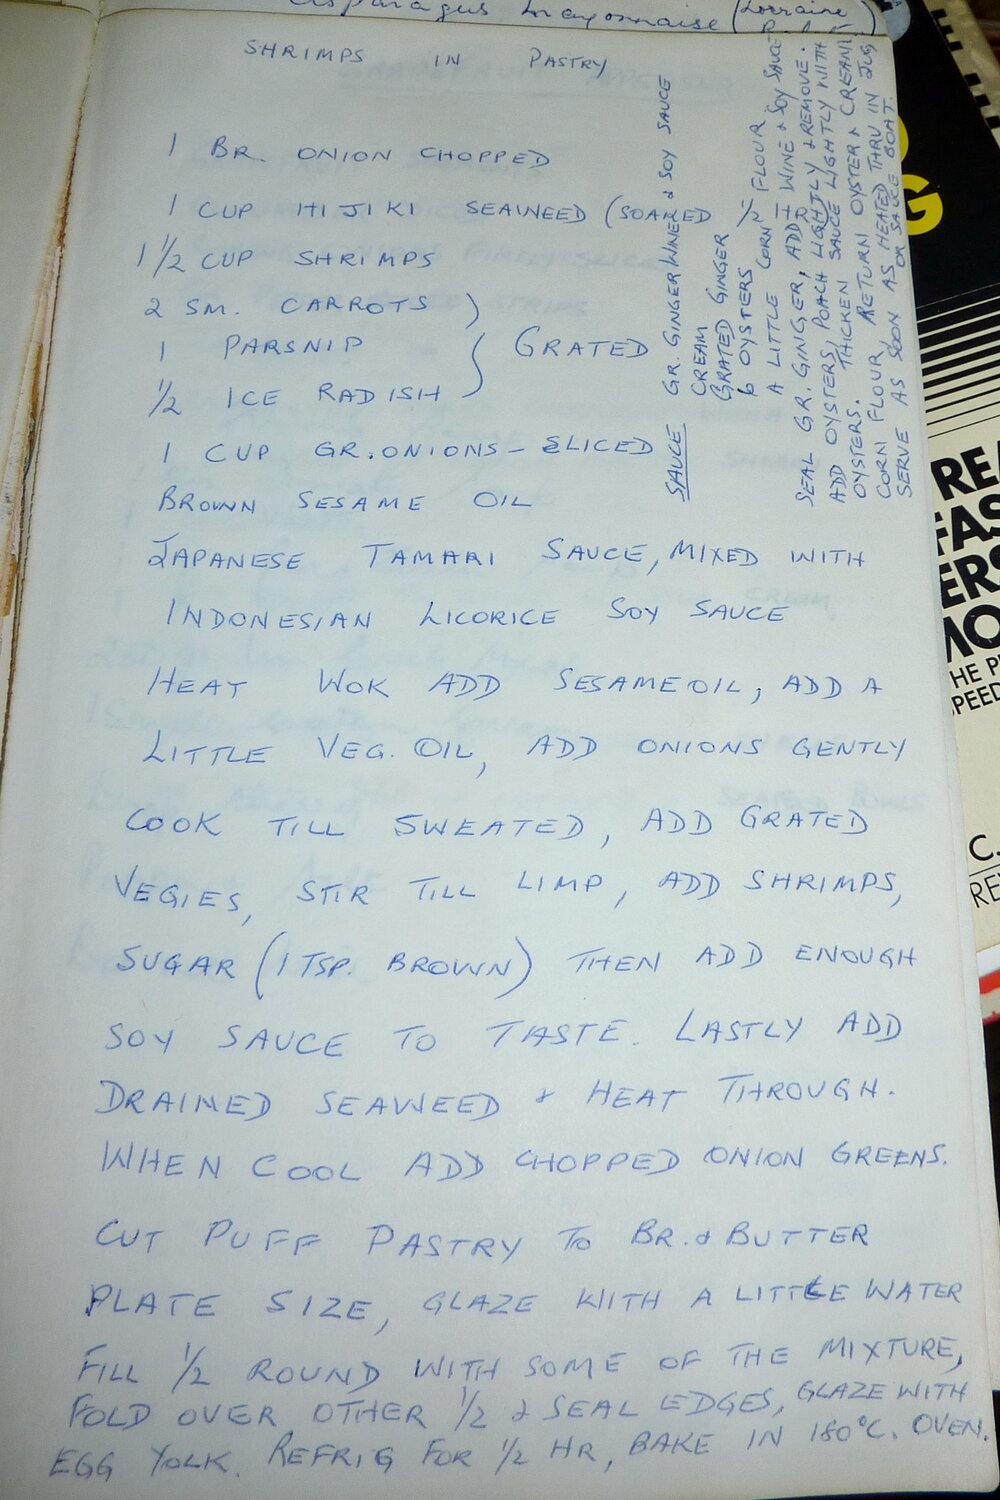 Asparagus Mayonnaise (Lorraine
SHRIMPS IN PASTRY
1 BR. ONION CHOPPED
1 CUP HIJIKI SEAWEED (SOAKED
1 1/2 CUP SHRIMPS
2 SM. CARROTS )
1 PARSNIP { GRATED
1/2 ICE RADISH )
1 CUP GR. ONIONS - SLICED
BROWN SESAME OIL
JAPANESE TAMARI SAUCE, MIXED WITH
INDONESIAN LICORICE SOY SAUCE
HEAT WOK ADD SESAME OIL, ADD A
LITTLE VEG. OIL, ADD ONIONS GENTLY
COOK TILL SWEATED, ADD GRATED
VEGIES, STIR TILL LIMP, ADD SHRIMPS,
SUGAR (1 TSP. BROWN) THEN ADD ENOUGH
SOY SAUCE TO TASTE. LASTLY ADD
DRAINED SEAWEED & HEAT THROUGH.
WHEN COOL ADD CHOPPED ONION GREENS.
CUT PUFF PASTRY TO BR. & BUTTER
PLATE SIZE, GLAZE WITH A LITTLE WATER
FILL 1/2 ROUND WITH SOME OF THE MIXTURE,
FOLD OVER OTHER 1/2 & SEAL EDGES, GLAZE WITH
EGG YOLK. REFRIG FOR 1/2 HR, BAKE IN 180°C. OVEN.
SAUCE GR. GINGER WINE & SOY SAUCE
CREAM
GRATED GINGER
6 OYSTERS
A LITTLE CORN FLOUR
SEAL GR. GINGER, ADD WINE & SOY SAUCE
ADD OYSTERS, POACH LIGHTLY & REMOVE.
OYSTERS. THICKEN SAUCE LIGHTLY WITH
CORN FLOUR, RETURN OYSTER & CREAM.
SERVE AS SOON AS HEATED THRU IN JUG
OR SAUCE BOAT.